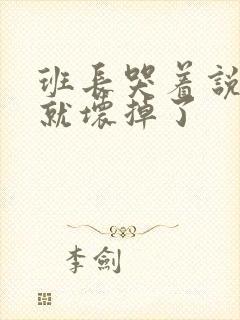 班長哭着說
就壞掉了
李劍